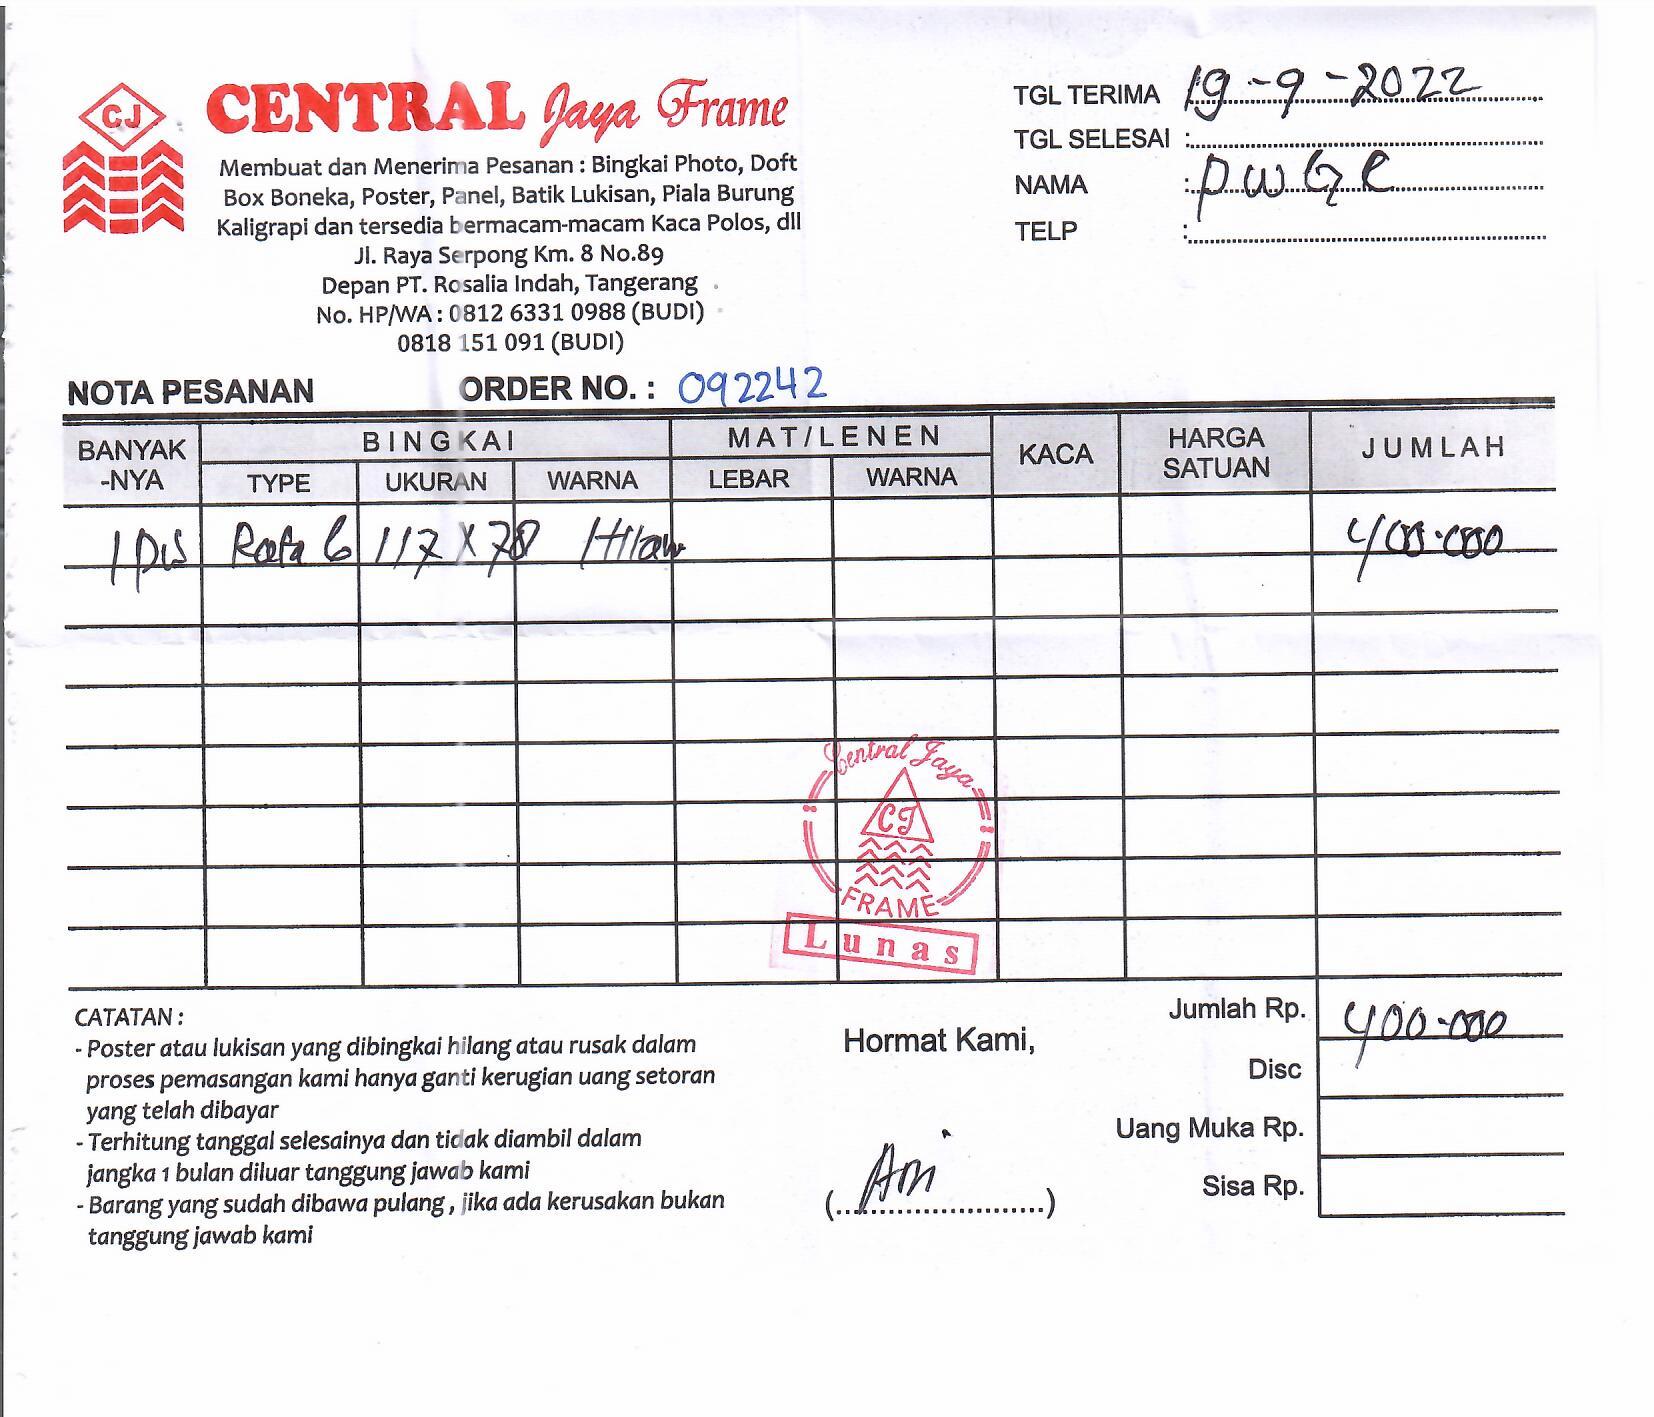 CJ
CENTRAL Jaya Frame
Membuat dan Menerima Pesanan : Bingkai Photo, Doft
Box Boneka, Poster, Panel, Batik Lukisan, Piala Burung
Kaligrapi dan tersedia bermacam-macam Kaca Polos, dll
Jl. Raya Serpong Km. 8 No.89
Depan PT. Rosalia Indah, Tangerang
No. HP/WA : 0812 6331 0988 (BUDI)
0818 151 091 (BUDI)
TGL TERIMA 19-9-2022
TGL SELESAI :
NAMA : PWGR
TELP :
NOTA PESANAN ORDER NO. : 092242
BANYAK-NYA BINGKAI MAT/LENEN KACA HARGA SATUAN JUMLAH
TYPE UKURAN WARNA LEBAR WARNA
1 Rata 6 117 X 78 400.000
Central Jaya
CJ
FRAME
Lunas
CATATAN :
- Poster atau lukisan yang dibingkai hilang atau rusak dalam
proses pemasangan kami hanya ganti kerugian uang setoran
yang telah dibayar
- Terhitung tanggal selesainya dan tidak diambil dalam
jangka 1 bulan diluar tanggung jawab kami
- Barang yang sudah dibawa pulang, jika ada kerusakan bukan
tanggung jawab kami
Hormat Kami,
(..........................)
Jumlah Rp. 400.000
Disc
Uang Muka Rp.
Sisa Rp.